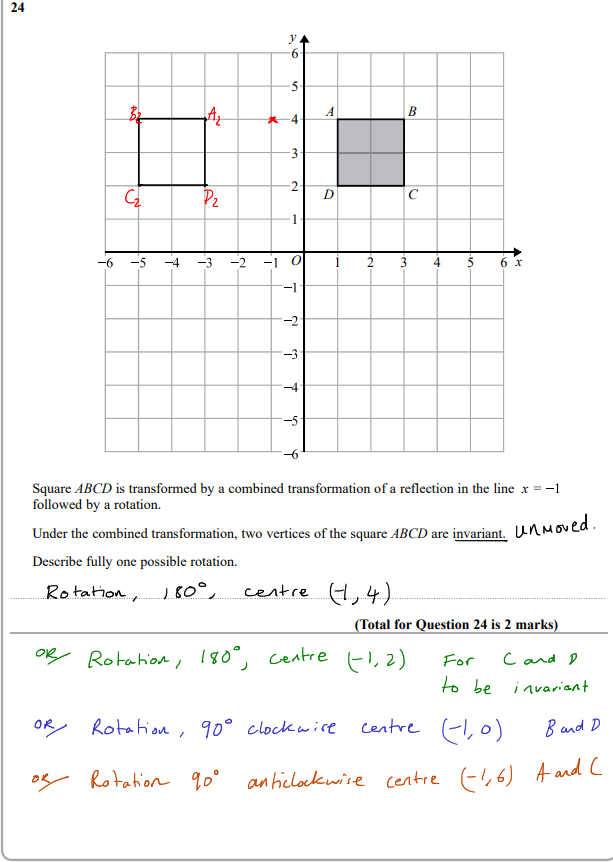 24
y
6
5
B2 A2 4 A B
3
C2 D2 2 D C
1
−6 −5 −4 −3 −2 −1 O 1 2 3 4 5 6 x
−1
−2
−3
−4
−5
−6
Square ABCD is transformed by a combined transformation of a reflection in the line x = −1
followed by a rotation.
Under the combined transformation, two vertices of the square ABCD are invariant. unmoved.
Describe fully one possible rotation.
Rotation, 180°, centre (-1, 4)
(Total for Question 24 is 2 marks)
OR Rotation, 180°, centre (-1, 2) For C and D
to be invariant
OR Rotation, 90° clockwise centre (-1, 0) B and D
OR Rotation 90° anticlockwise centre (-1, 6) A and C